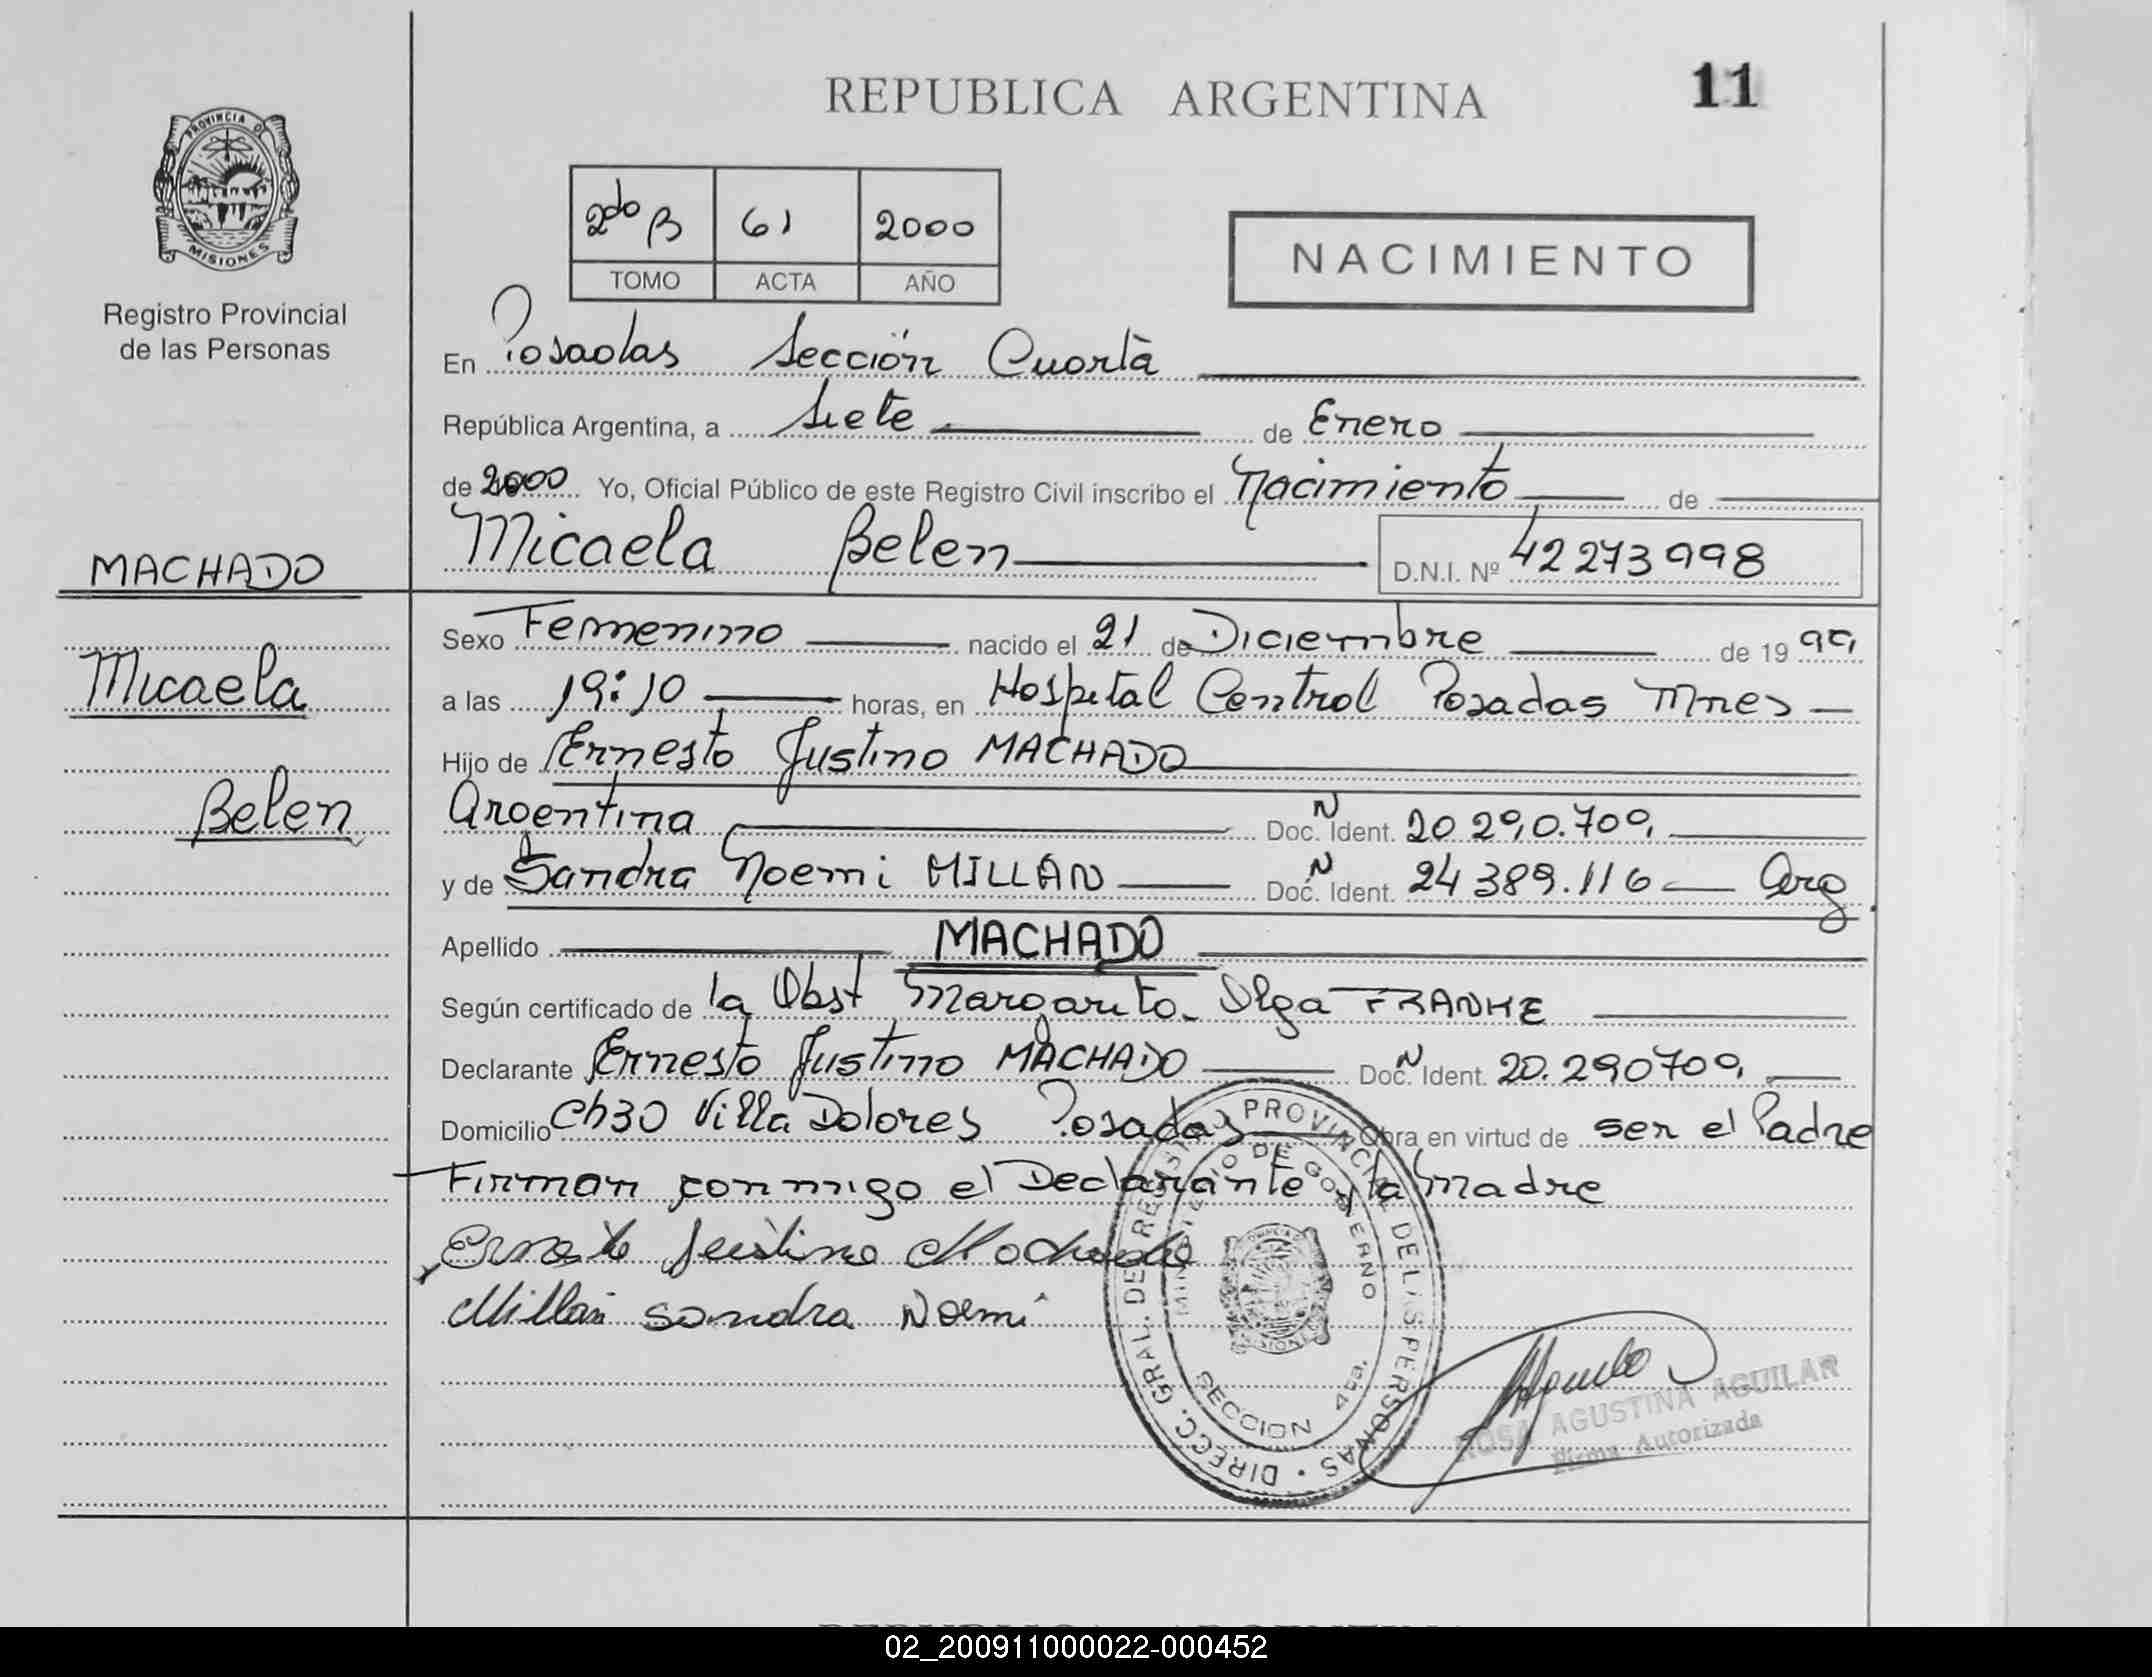 REPUBLICA ARGENTINA
11
PROVINCIA DE
MISIONES
Registro Provincial
de las Personas
2do B 61 2000
TOMO ACTA AÑO
NACIMIENTO
En Posadas Sección Cuarta
República Argentina, a Siete de Enero
de 2000 Yo, Oficial Público de este Registro Civil inscribo el Nacimiento de
Micaela Belen D.N.I. Nº 42273998
MACHADO
Micaela
Belen
Sexo Femenino nacido el 21 de Diciembre de 19 99
a las 19:10 horas, en Hospital Central Posadas Mnes
Hijo de Ernesto Justino MACHADO
Argentina Doc. Ident. N 20.290.709
y de Sandra Noemi MILLAN Doc. Ident. N 24389.116 Arg
Apellido MACHADO
Según certificado de la Obst Margarita Olga FRANKE
Declarante Ernesto Justino MACHADO Doc. Ident. N 20.290709
Domicilio Ch30 Villa Dolores Posadas Obra en virtud de ser el Padre
Firman conmigo el Declarante y la Madre
Ernesto Justino Machado
Millan Sandra Noemi
DIRECC. GRAL. DE REGISTRO PROVINCIAL DE LAS PERSONAS
MINISTERIO DE GOBIERNO
SECCION 4ta.
ROSA AGUSTINA AGUILAR
Firma Autorizada
02_200911000022-000452